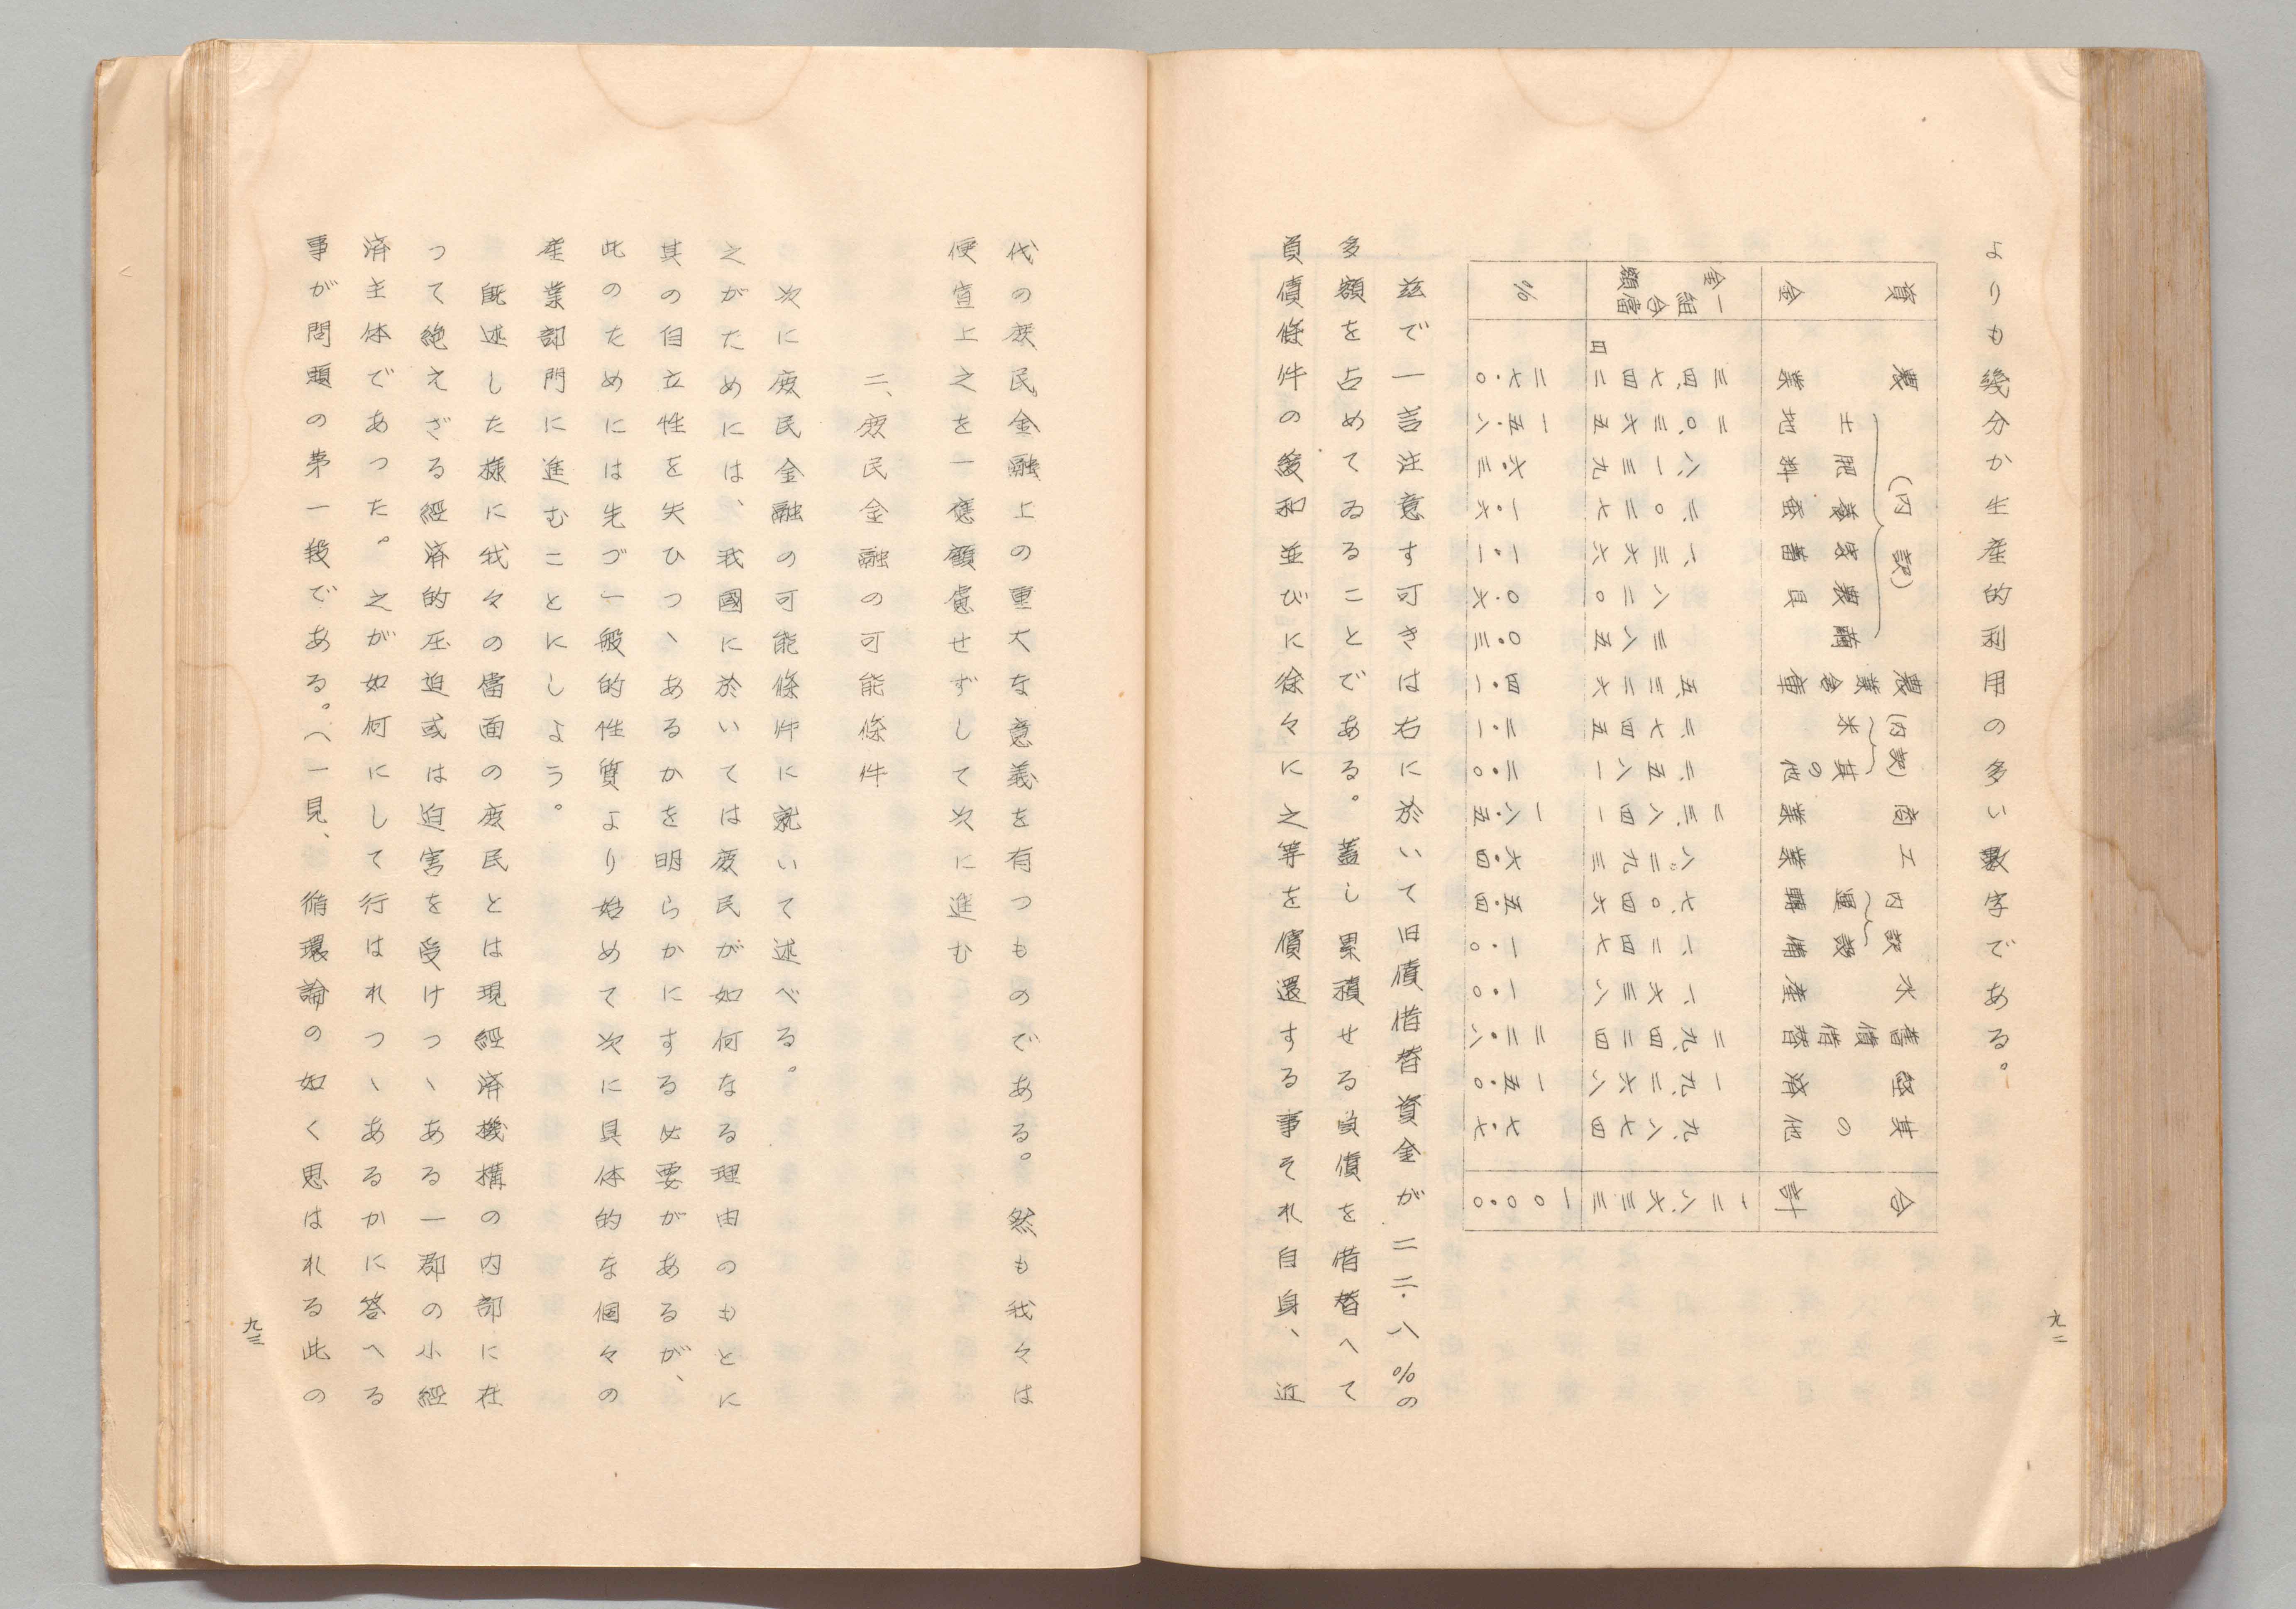 よりも幾分か生産的利用の多い數字である。
資金 一組合當金額 %
農業 三四、七四二円 二七・〇
(内訳)
土地 二〇、三六五 一五・八
肥料 八、一三九 六・三
養蚕 二、〇二七 一・六
家畜 一、三六六 一・一
農具 八二〇 〇・六
繭 三八五 〇・三
農業倉庫 五、三二六 四・一
(内訳)
米 二、七四五 二・一
其の他 二、五八一 二・〇
商業 二三、八四一 一八・五
工業 八、二九三 六・四
内訳
運轉 七、〇四六 五・四
設備 一、二四七 一・〇
水産 一、六三八 一・〇
舊債借替 二九、四二四 二二・八
経済 一九、二六八 一五・〇
其の他 九、八七四 七・七
合計 一二八、六三三 一〇〇・〇
茲で一言注意す可きは右に於いて旧債借替資金が二二・八%の
多額を占めてゐることである。蓋し累積せる負債を借替へて
負債條件の緩和並びに徐々に之等を償還する事それ自身、近
九二
代の庶民金融上の重大な意義を有つものである。然も我々は
便宜上之を一應顧慮せずして次に進む
二、庶民金融の可能條件
次に庶民金融の可能條件に就いて述べる。
之がためには、我國に於いては庶民が如何なる理由のもとに
其の自立性を失ひつゝあるかを明らかにする必要があるが、
此のためには先づ一般的性質より始めて次に具体的な個々の
産業部門に進むことにしよう。
既述した様に我々の當面の庶民とは現經済機構の内部に在
って絶えざる經済的圧迫或は迫害を受けつゝある一郡の小經
済主体であった。之が如何にして行はれつゝあるかに答へる
事が問題の第一段である。へ一見、循環論の如く思はれる此の
九三